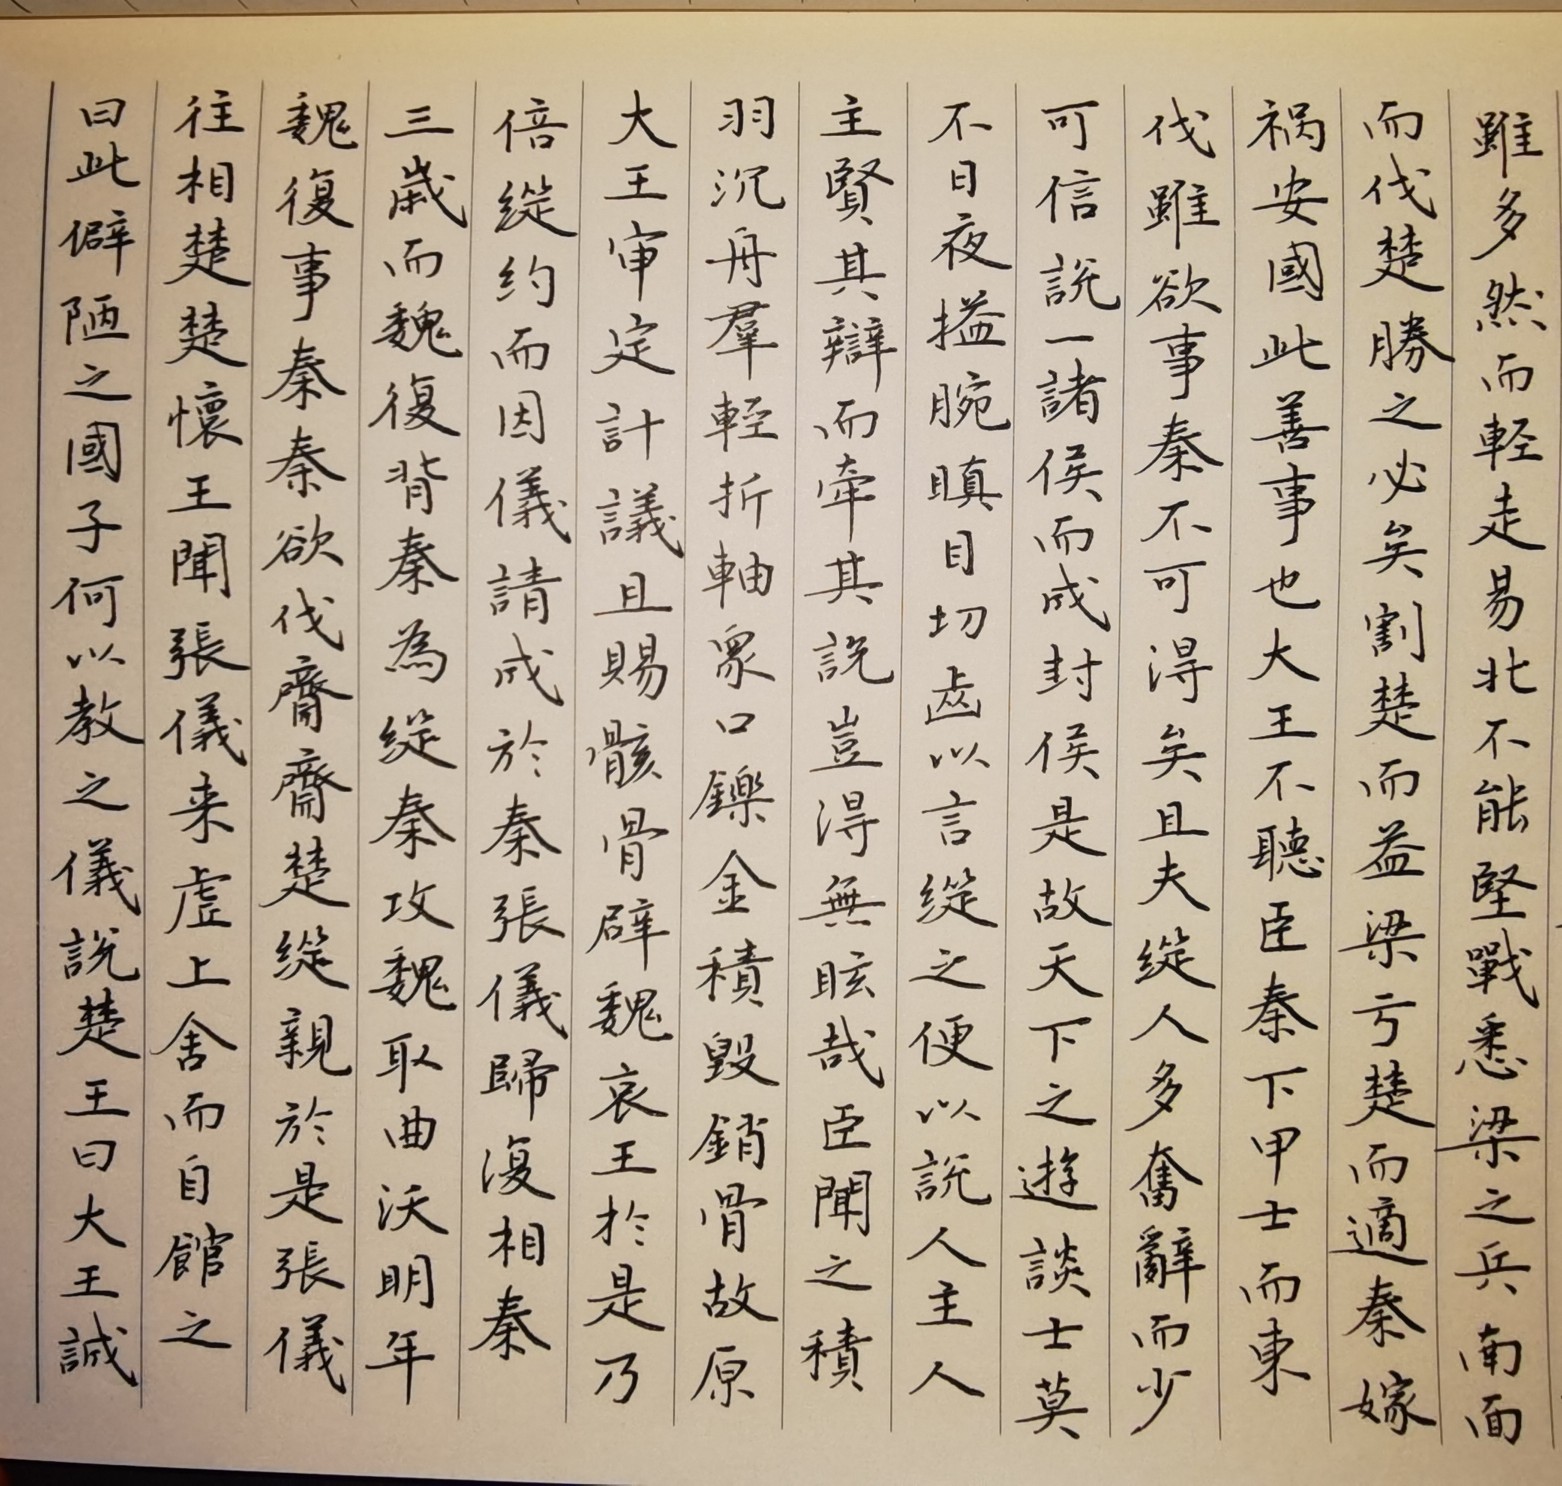 雖多然而輕走易北不能堅戰悉梁之兵南面
而伐楚勝之必矣割楚而益梁亏楚而適秦嫁
祸安國此善事也大王不聽臣秦下甲士而東
伐雖欲事秦不可淂矣且夫縦人多奮辭而少
可信説一諸侯而成封侯是故天下之遊談士莫
不日夜搤腕瞋目切齒以言縦之便以説人主人
主賢其辯而牽其説豈淂無眩哉臣聞之積
羽沉舟羣輕折軸衆口鑠金積毀銷骨故原
大王审定計議且賜骸骨辟魏哀王於是乃
倍縦約而因儀請成於秦張儀歸復相秦
三歲而魏復背秦為縦秦攻魏取曲沃明年
魏復事秦秦欲伐齊齊楚縦親於是張儀
往相楚楚懷王聞張儀来虚上舍而自館之
曰此僻陋之國子何以教之儀説楚王曰大王誠